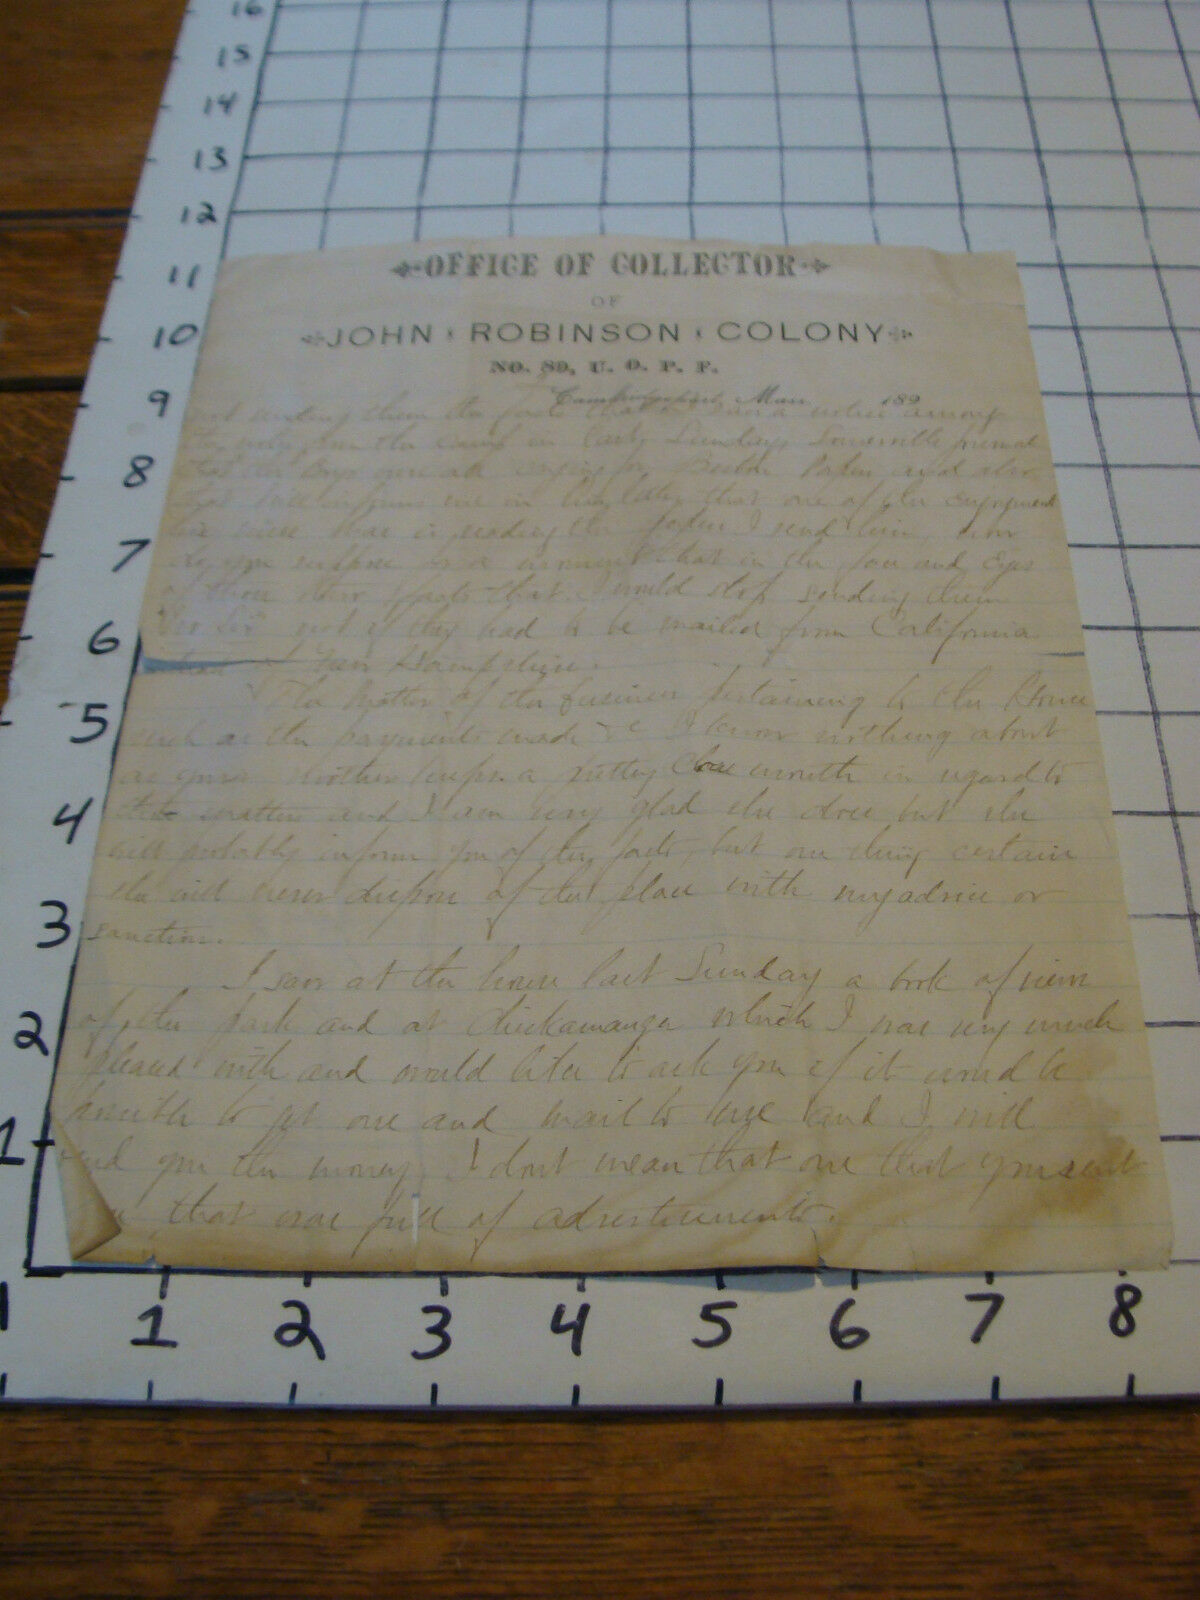 16
15
14
13
12
11
10
9
8
7
6
5
4
3
2
1
OFFICE OF COLLECTOR
OF
JOHN ROBINSON COLONY
NO. 89, U. O. P. F.
Cambridgeport, Mass. 189
not sending them the that saw a notice among
the from the camp in last Sundays Somerville Journal
that the boys were all for Boston Papers and also
that informs me in his letter that one of the
was in reading the papers I send him, now
do you suppose for a moment that in the face and Eyes
of those two facts that I would stop sending them
"No Sir" not if they had to be mailed from California
instead of New Hampshire.
The matter of the business pertaining to the House
such as the payments made &c I know nothing about
as your mother keeps a pretty close mouth in regard to
matters and I am very glad she does but she
will probably inform you of the facts, but one thing certain
she will never dispose of the place with my advice or
sanction.
I saw at the house last Sunday a book of views
of the park and at Chickamauga which I was very much
pleased with and would like to ask you if it would be
to get one and mail to me and I will
send you the money, I dont mean that one that you sent
that was full of advertisements.
1 2 3 4 5 6 7 8